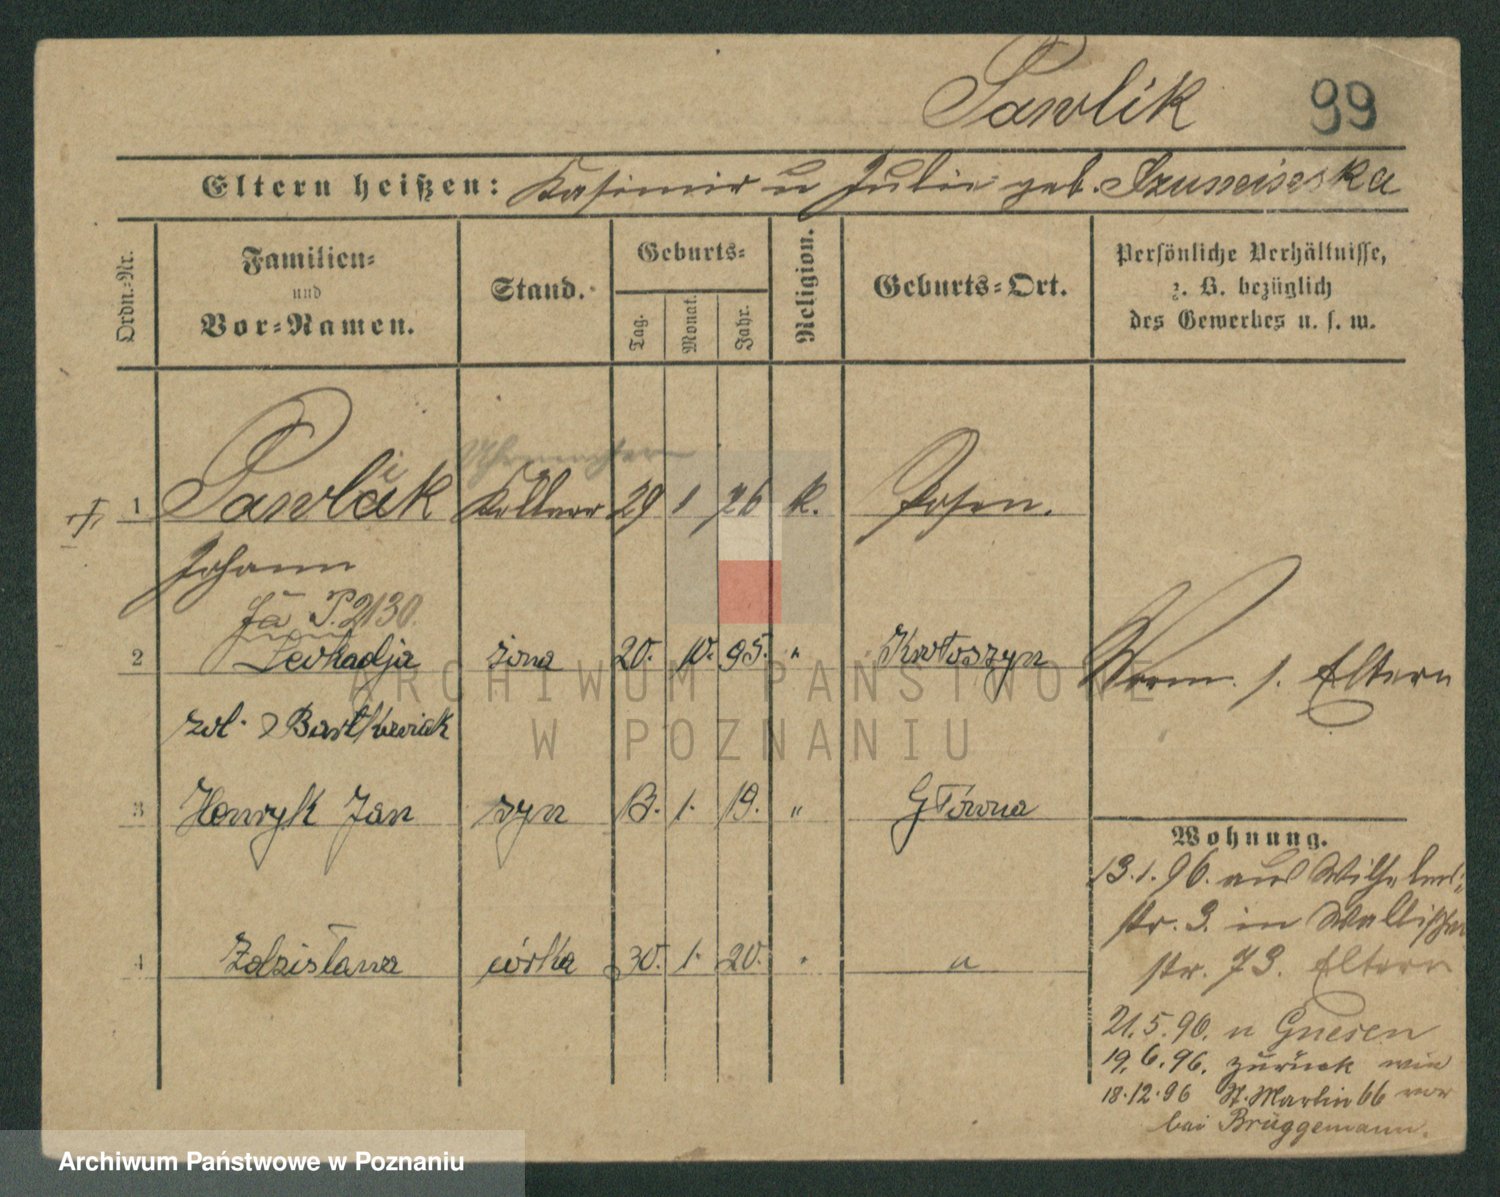 Pawlik 99
Eltern heißen: Kasimir u Julie geb.
Ordn.-Nr.
Familien-
und
Vor-Namen.
Stand.
Geburts-
Tag.
Monat.
Jahr.
Religion.
Geburts-Ort.
Persönliche Verhältnisse,
z. B. bezüglich
des Gewerbes u. s. w.
1 Pawlak Kellner 29 1 76 k. Posen.
Johann
P. 2130.
2 Leokadja żona 20. 10. 95. " Krotoszyn
Norm. s. Eltern
3 Henryk Jan syn 13. 1. 19. " Główna
Wohnung.
13.1.96. aus Wilhelm-
str. 3. in Wallischei
str. 73. Eltern
4 Zdzisława córka 30. 1. 20. " "
21.5.96. n Gnesen
19.6.96. zurück wie
18.12.96 St. Martin 66 vor
bei Brüggemann.
ARCHIWUM PAŃSTWOWE
W POZNANIU
Archiwum Państwowe w Poznaniu